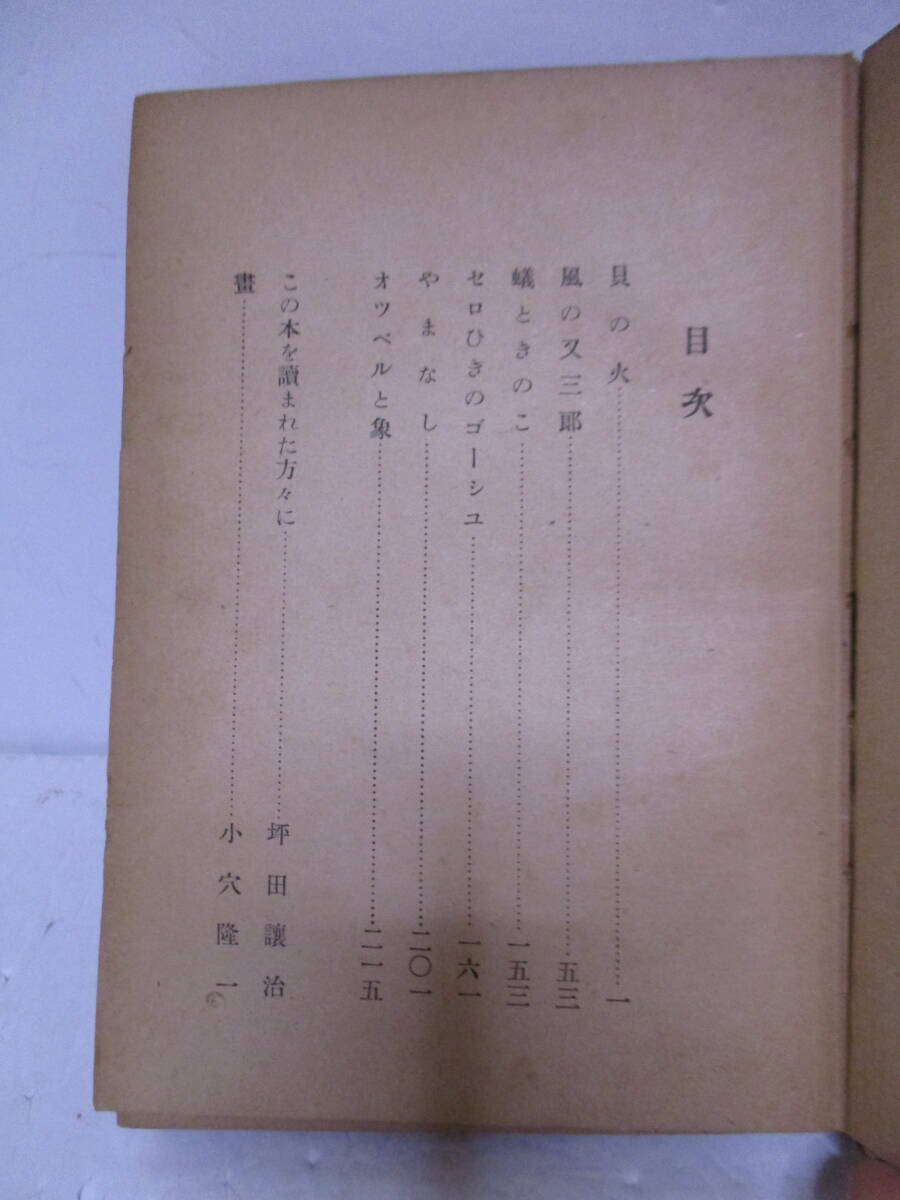 目次
貝の火……一
風の又三郎……五三
蟻ときのこ……一五三
セロひきのゴーシユ……一六一
やまなし……二〇一
オツペルと象……二一五
この本を讀まれた方々に……坪田讓治
畫……小穴隆一